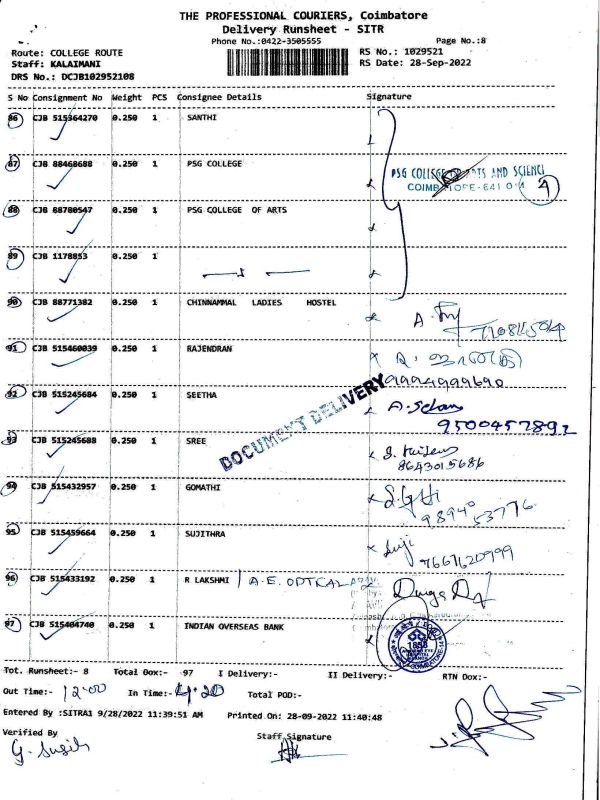 THE PROFESSIONAL COURIERS, Coimbatore
Delivery Runsheet - SITR
Phone No.:0422-3505555 Page No.:8
Route: COLLEGE ROUTE RS No.: 1029521
Staff: KALAIMANI RS Date: 28-Sep-2022
DRS No.: DCJB102952108
S No Consignment No Weight PCS Consignee Details Signature
86 CJB 515364270 0.250 1 SANTHI
87 CJB 88468688 0.250 1 PSG COLLEGE
PSG COLLEGE OF ARTS AND SCIENCE
COIMBATORE-641 014
88 CJB 88780547 0.250 1 PSG COLLEGE OF ARTS
89 CJB 1178853 0.250 1
90 CJB 88771382 0.250 1 CHINNAMMAL LADIES HOSTEL
91 CJB 515460039 0.250 1 RAJENDRAN
9994999690
92 CJB 515245684 0.250 1 SEETHA
DOCUMENT DELIVERY
93 CJB 515245688 0.250 1 SREE
8643015686
94 CJB 515432957 0.250 1 GOMATHI
95 CJB 515459664 0.250 1 SUJITHRA Suji
7667620999
96 CJB 515433192 0.250 1 R LAKSHMI A.E. OPTICAL
97 CJB 515404740 0.250 1 INDIAN OVERSEAS BANK
Tot. Runsheet:- 8 Total Dox:- 97 I Delivery:- II Delivery:- RTN Dox:-
Out Time:- 12.00 In Time:- 4.20 Total POD:-
Entered By :SITRA1 9/28/2022 11:39:51 AM Printed On: 28-09-2022 11:40:48
Verified By Staff Signature